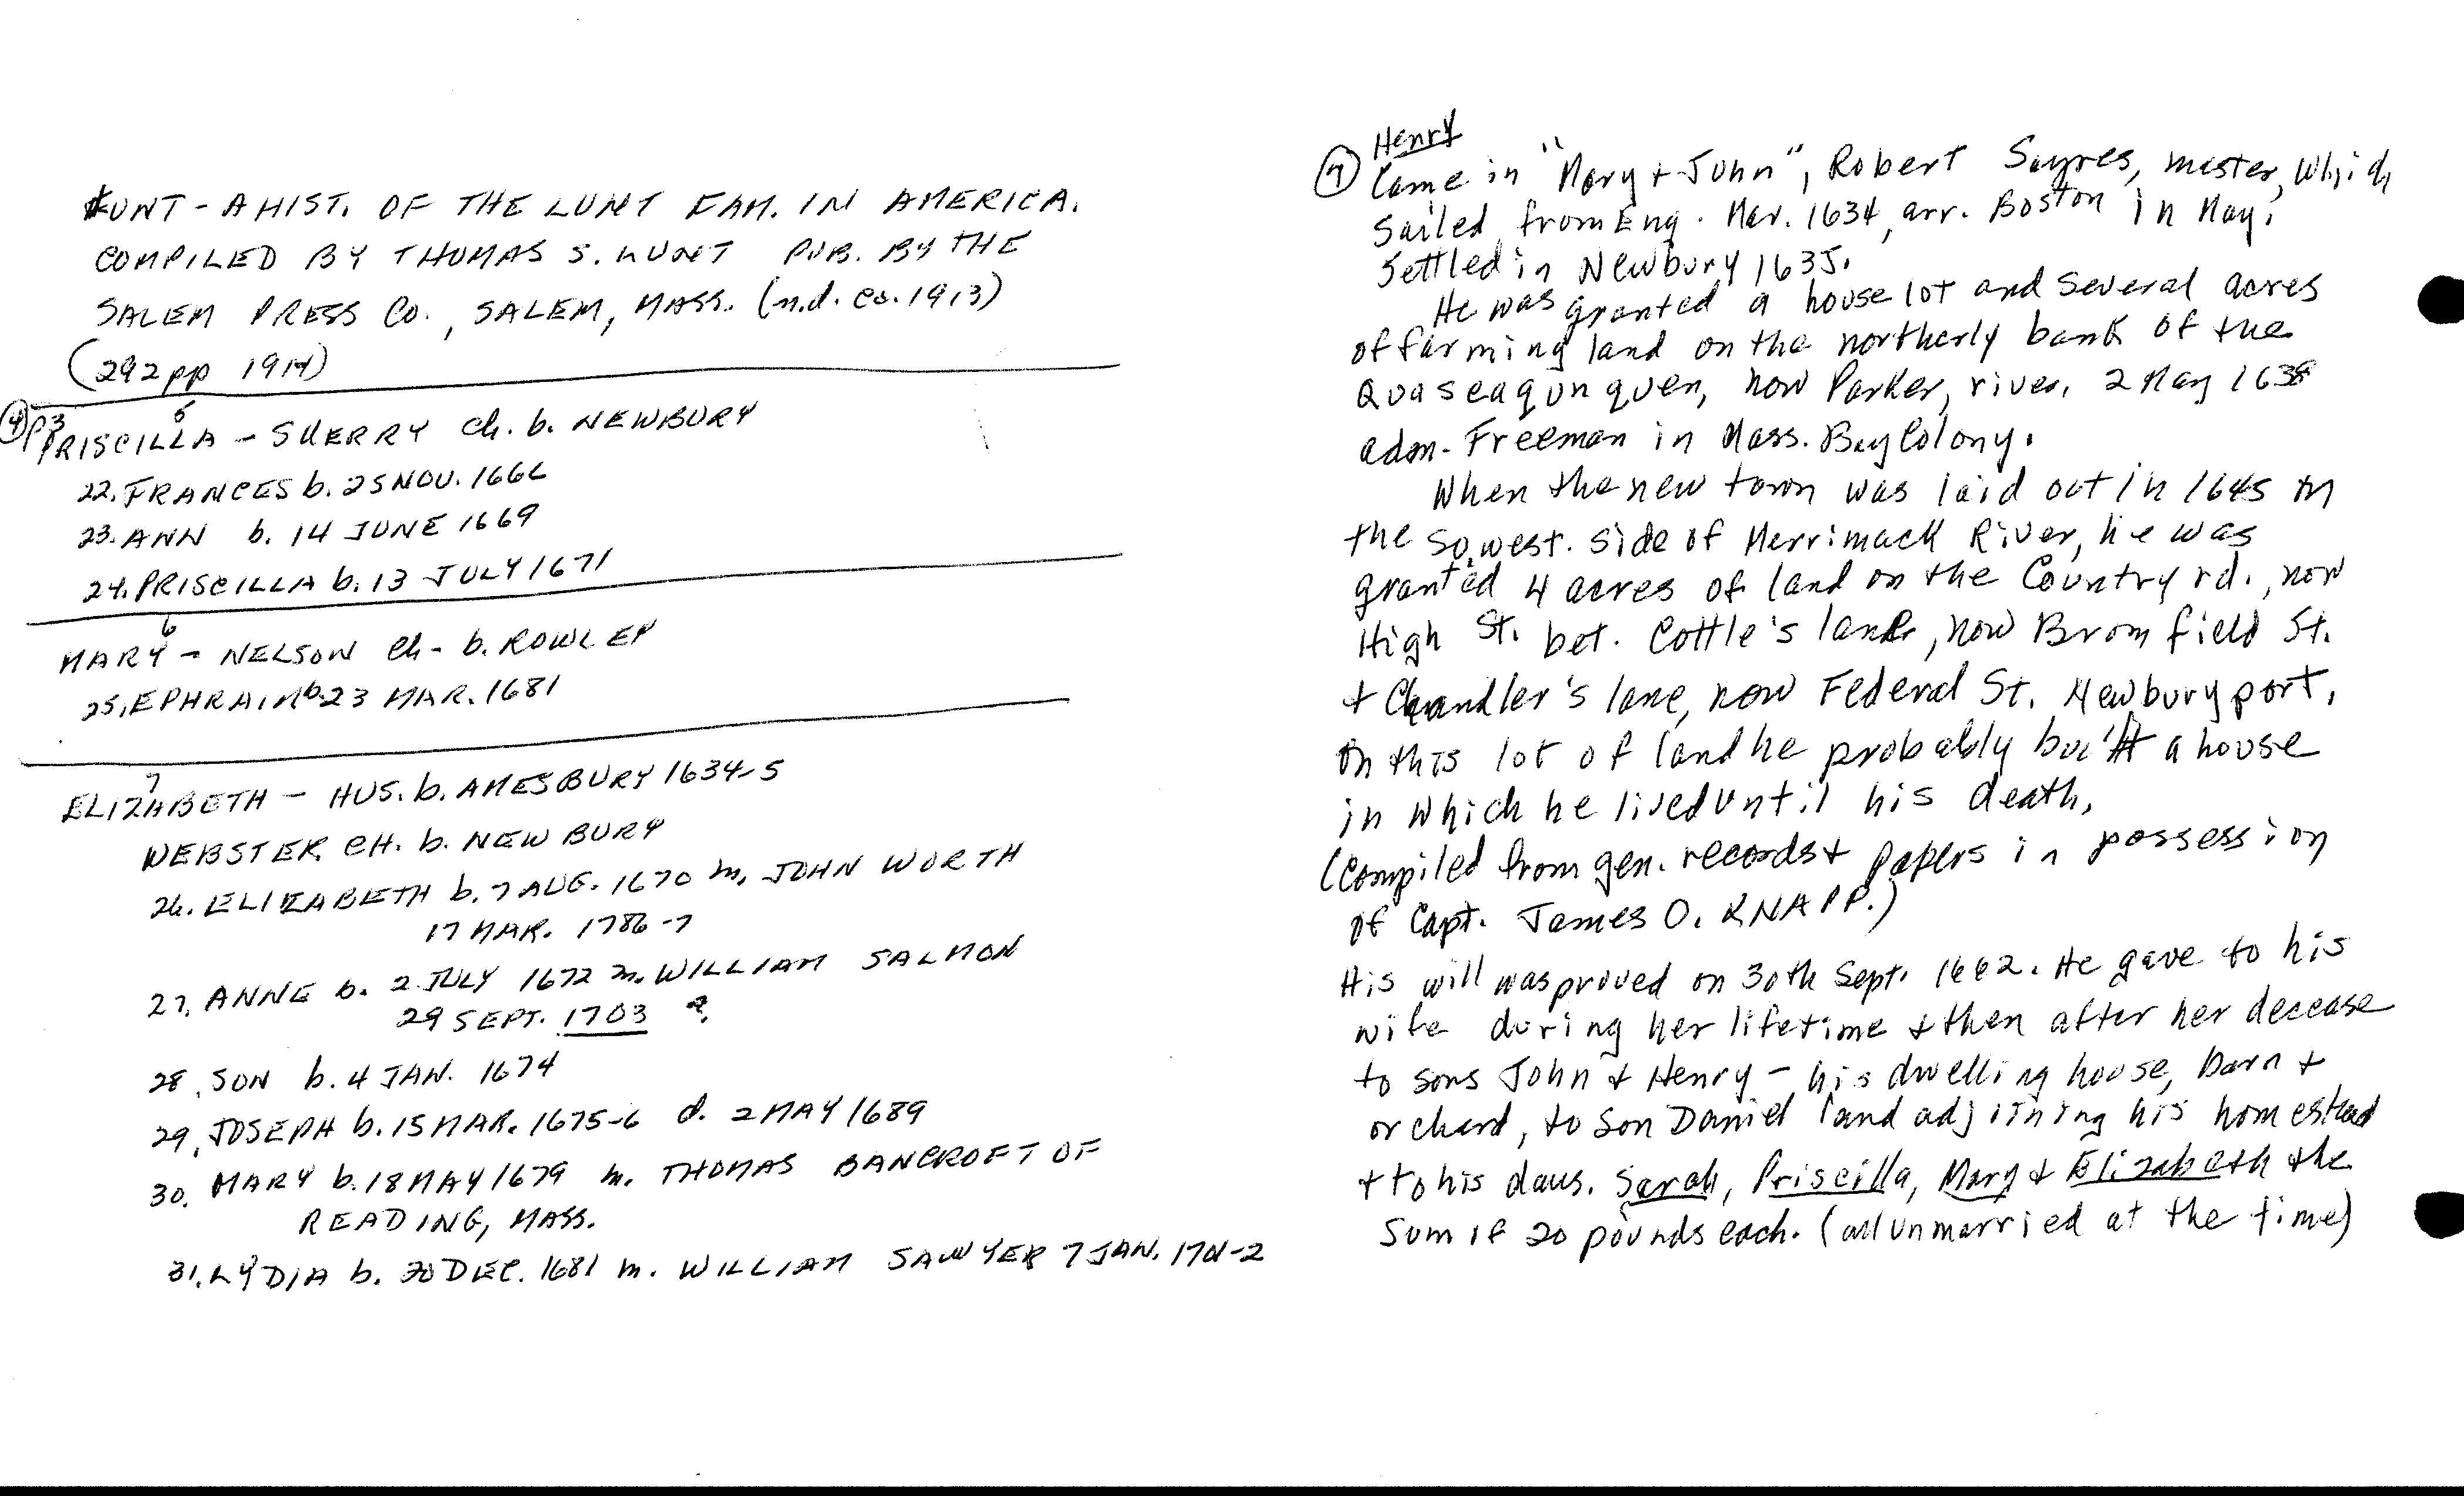 LUNT - A HIST. OF THE LUNT FAM. IN AMERICA.
COMPILED BY THOMAS S. LUNT PUB. BY THE
SALEM PRESS CO., SALEM, MASS. (n.d. ca. 1913)
(292 pp 1914)
④ P3
5
PRISCILLA - SHERRY Ch. b. NEWBURY
22. FRANCES b. 25 NOV. 1666
23. ANN b. 14 JUNE 1669
24. PRISCILLA b. 13 JULY 1671
6
MARY - NELSON Ch - b. ROWLEY
25. EPHRAIM b. 23 MAR. 1681
7
ELIZABETH - HUS. b. AMESBURY 1634-5
WEBSTER CH. b. NEWBURY
26. ELIZABETH b. 7 AUG. 1670 m. JOHN WORTH
17 MAR. 1786-7
27. ANNE b. 2 JULY 1672 m. WILLIAM SALMON
29 SEPT. 1703 ?
28. SON b. 4 JAN. 1674
29. JOSEPH b. 15 MAR. 1675-6 d. 2 MAY 1689
30. MARY b. 18 MAY 1679 m. THOMAS BANCROFT OF
READING, MASS.
31. LYDIA b. 20 DEC. 1681 m. WILLIAM SAWYER 7 JAN. 1701-2
Henry
Came in "Mary + John", Robert Sayres, master, which
Sailed from Eng. Mar. 1634, arr. Boston in May.
Settled in Newbury 1635.
He was granted a house lot and several acres
of farming land on the northerly bank of the
Quaseaqunquen, now Parker, river. 2 May 1638
adm. Freeman in Mass. Bay Colony.
When the new town was laid out in 1645 on
the so. west. side of Merrimack River, he was
granted 4 acres of land on the Country rd., now
High St. bet. Cottle's lane, now Bromfield St.
+ Chandler's lane, now Federal St. Newburyport.
On this lot of land he probably built a house
in which he lived until his death.
(Compiled from gen. records + papers in possession
of Capt. James O. KNAPP.)
His will was proved on 30th Sept. 1662. He gave to his
wife during her lifetime + then after her decease
to sons John + Henry - his dwelling house, barn +
orchard, to son Daniel land adjoining his homestead
+ to his daus. Sarah, Priscilla, Mary + Elizabeth the
Sum of 20 pounds each. (all unmarried at the time)